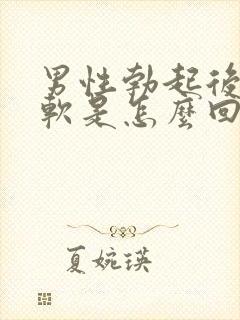 男性勃起後
軟是怎麼回
夏婉瑛